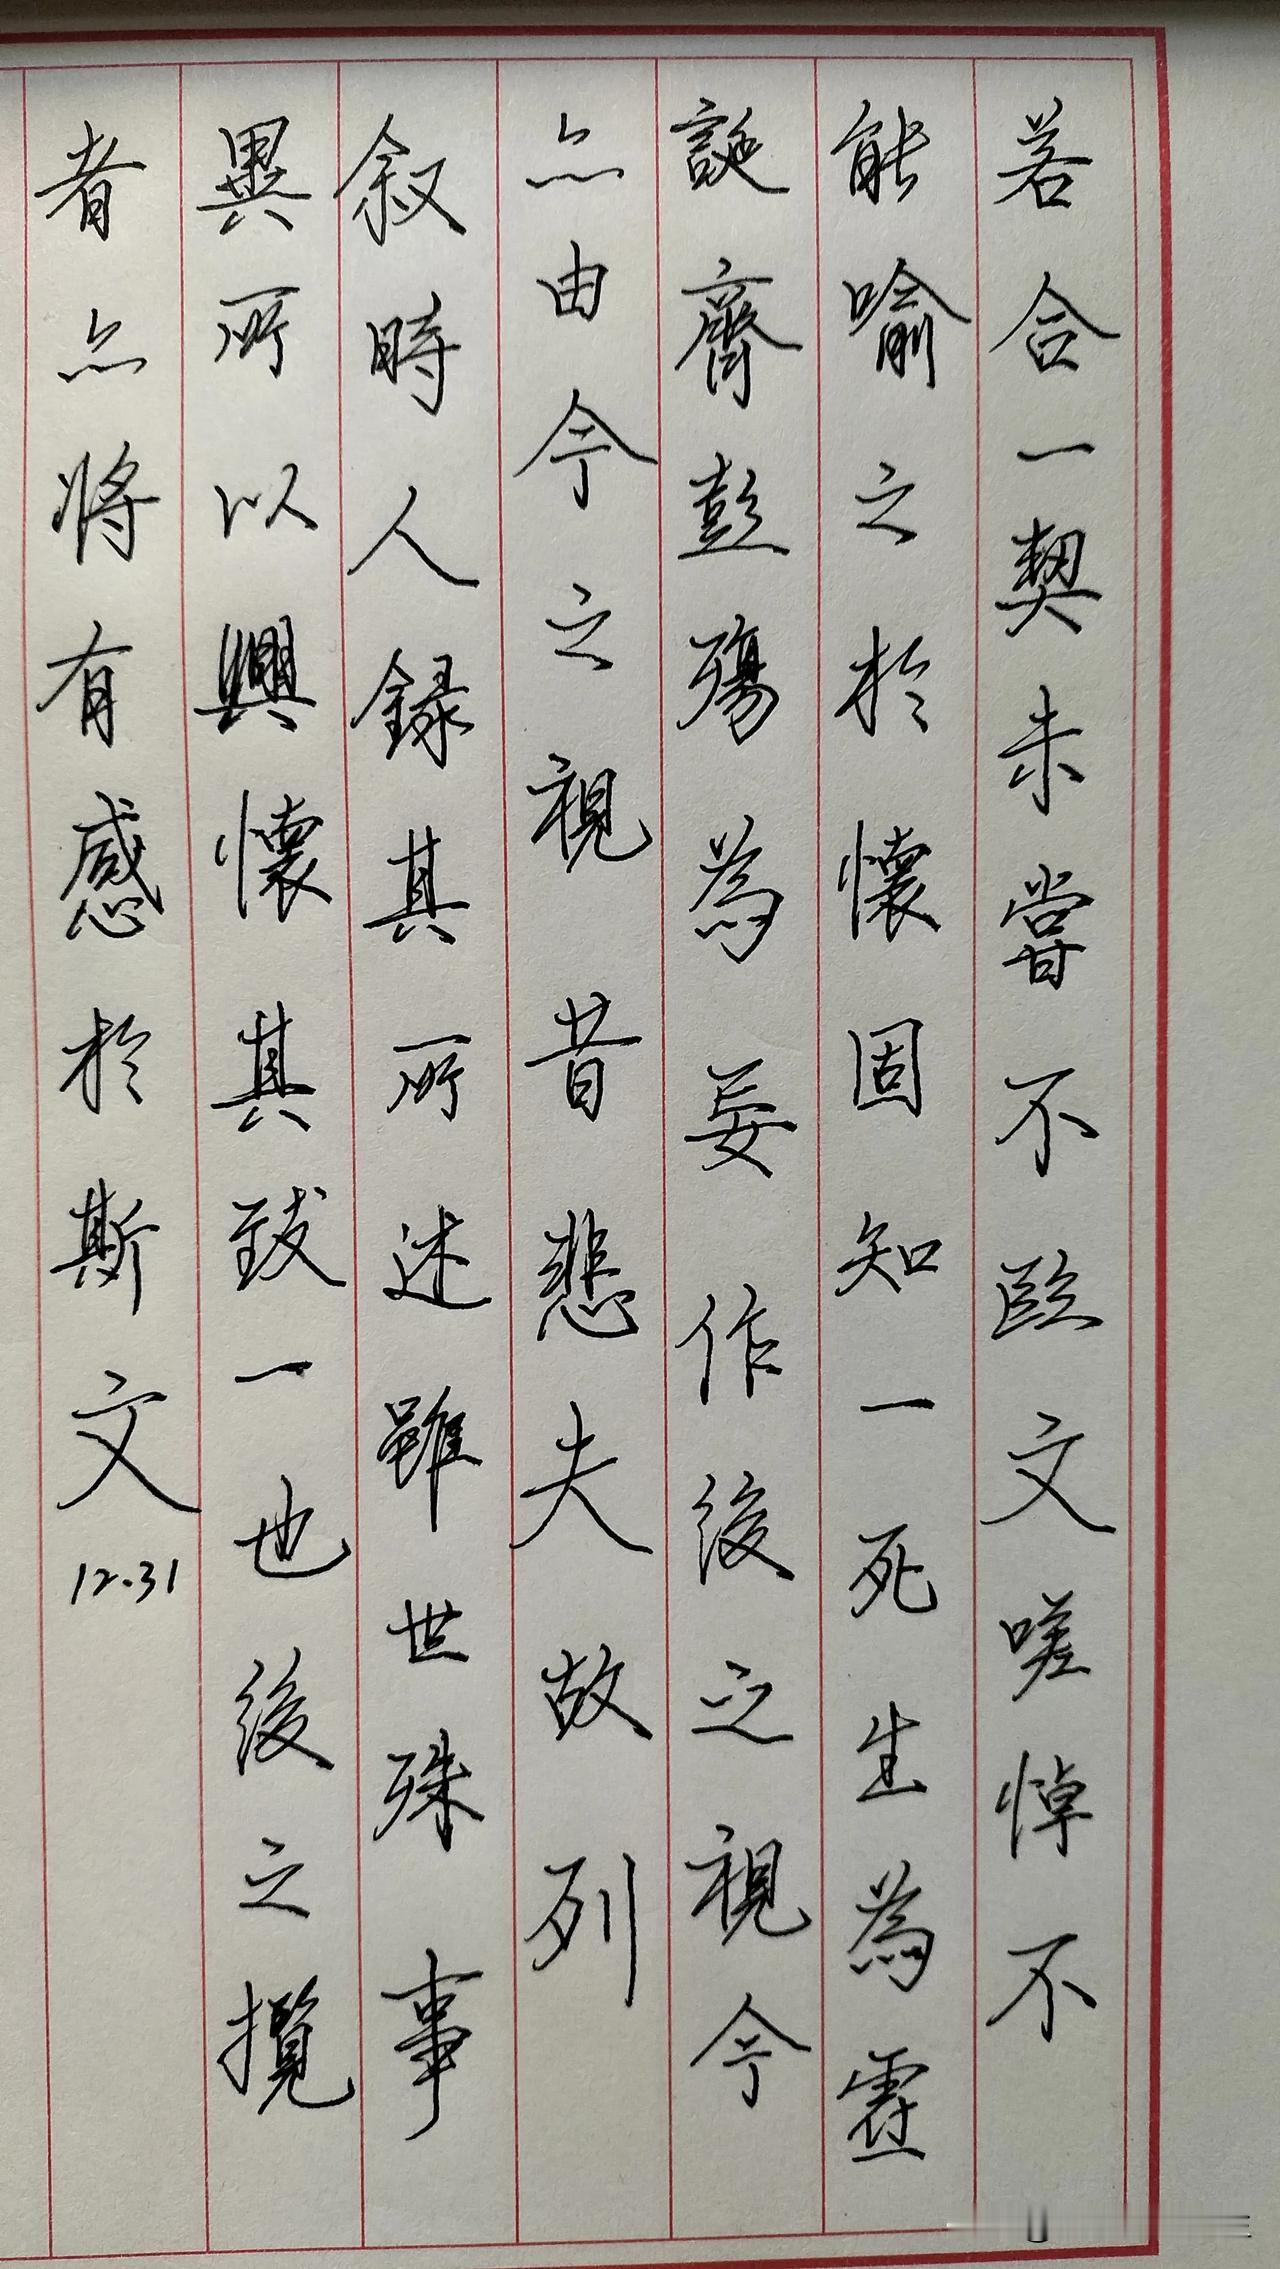 若合一契未嘗不臨文嗟悼不
能喻之於懷固知一死生為虛
誕齊彭殤為妄作後之視今
亦由今之視昔悲夫故列
敘時人錄其所述雖世殊事
異所以興懷其致一也後之攬
者亦將有感於斯文
12.31